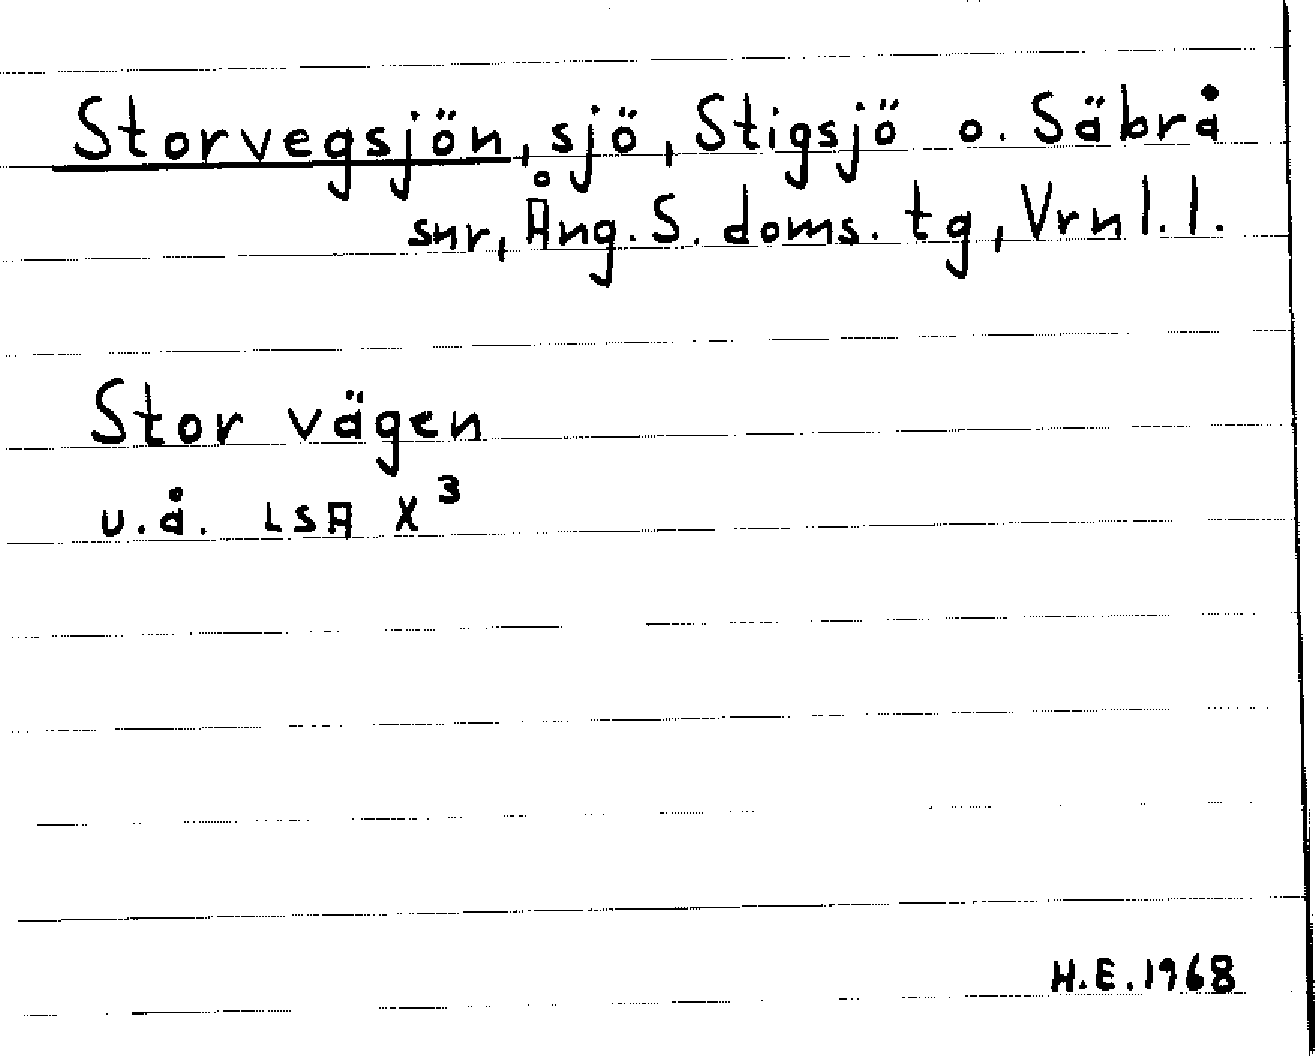 Storvegsjön, sjö, Stigsjö o. Säbrå
snr, Ång. S. doms. tg, Vrnl. l.
Stor vägen
u.å. LSA X³
H.E. 1968